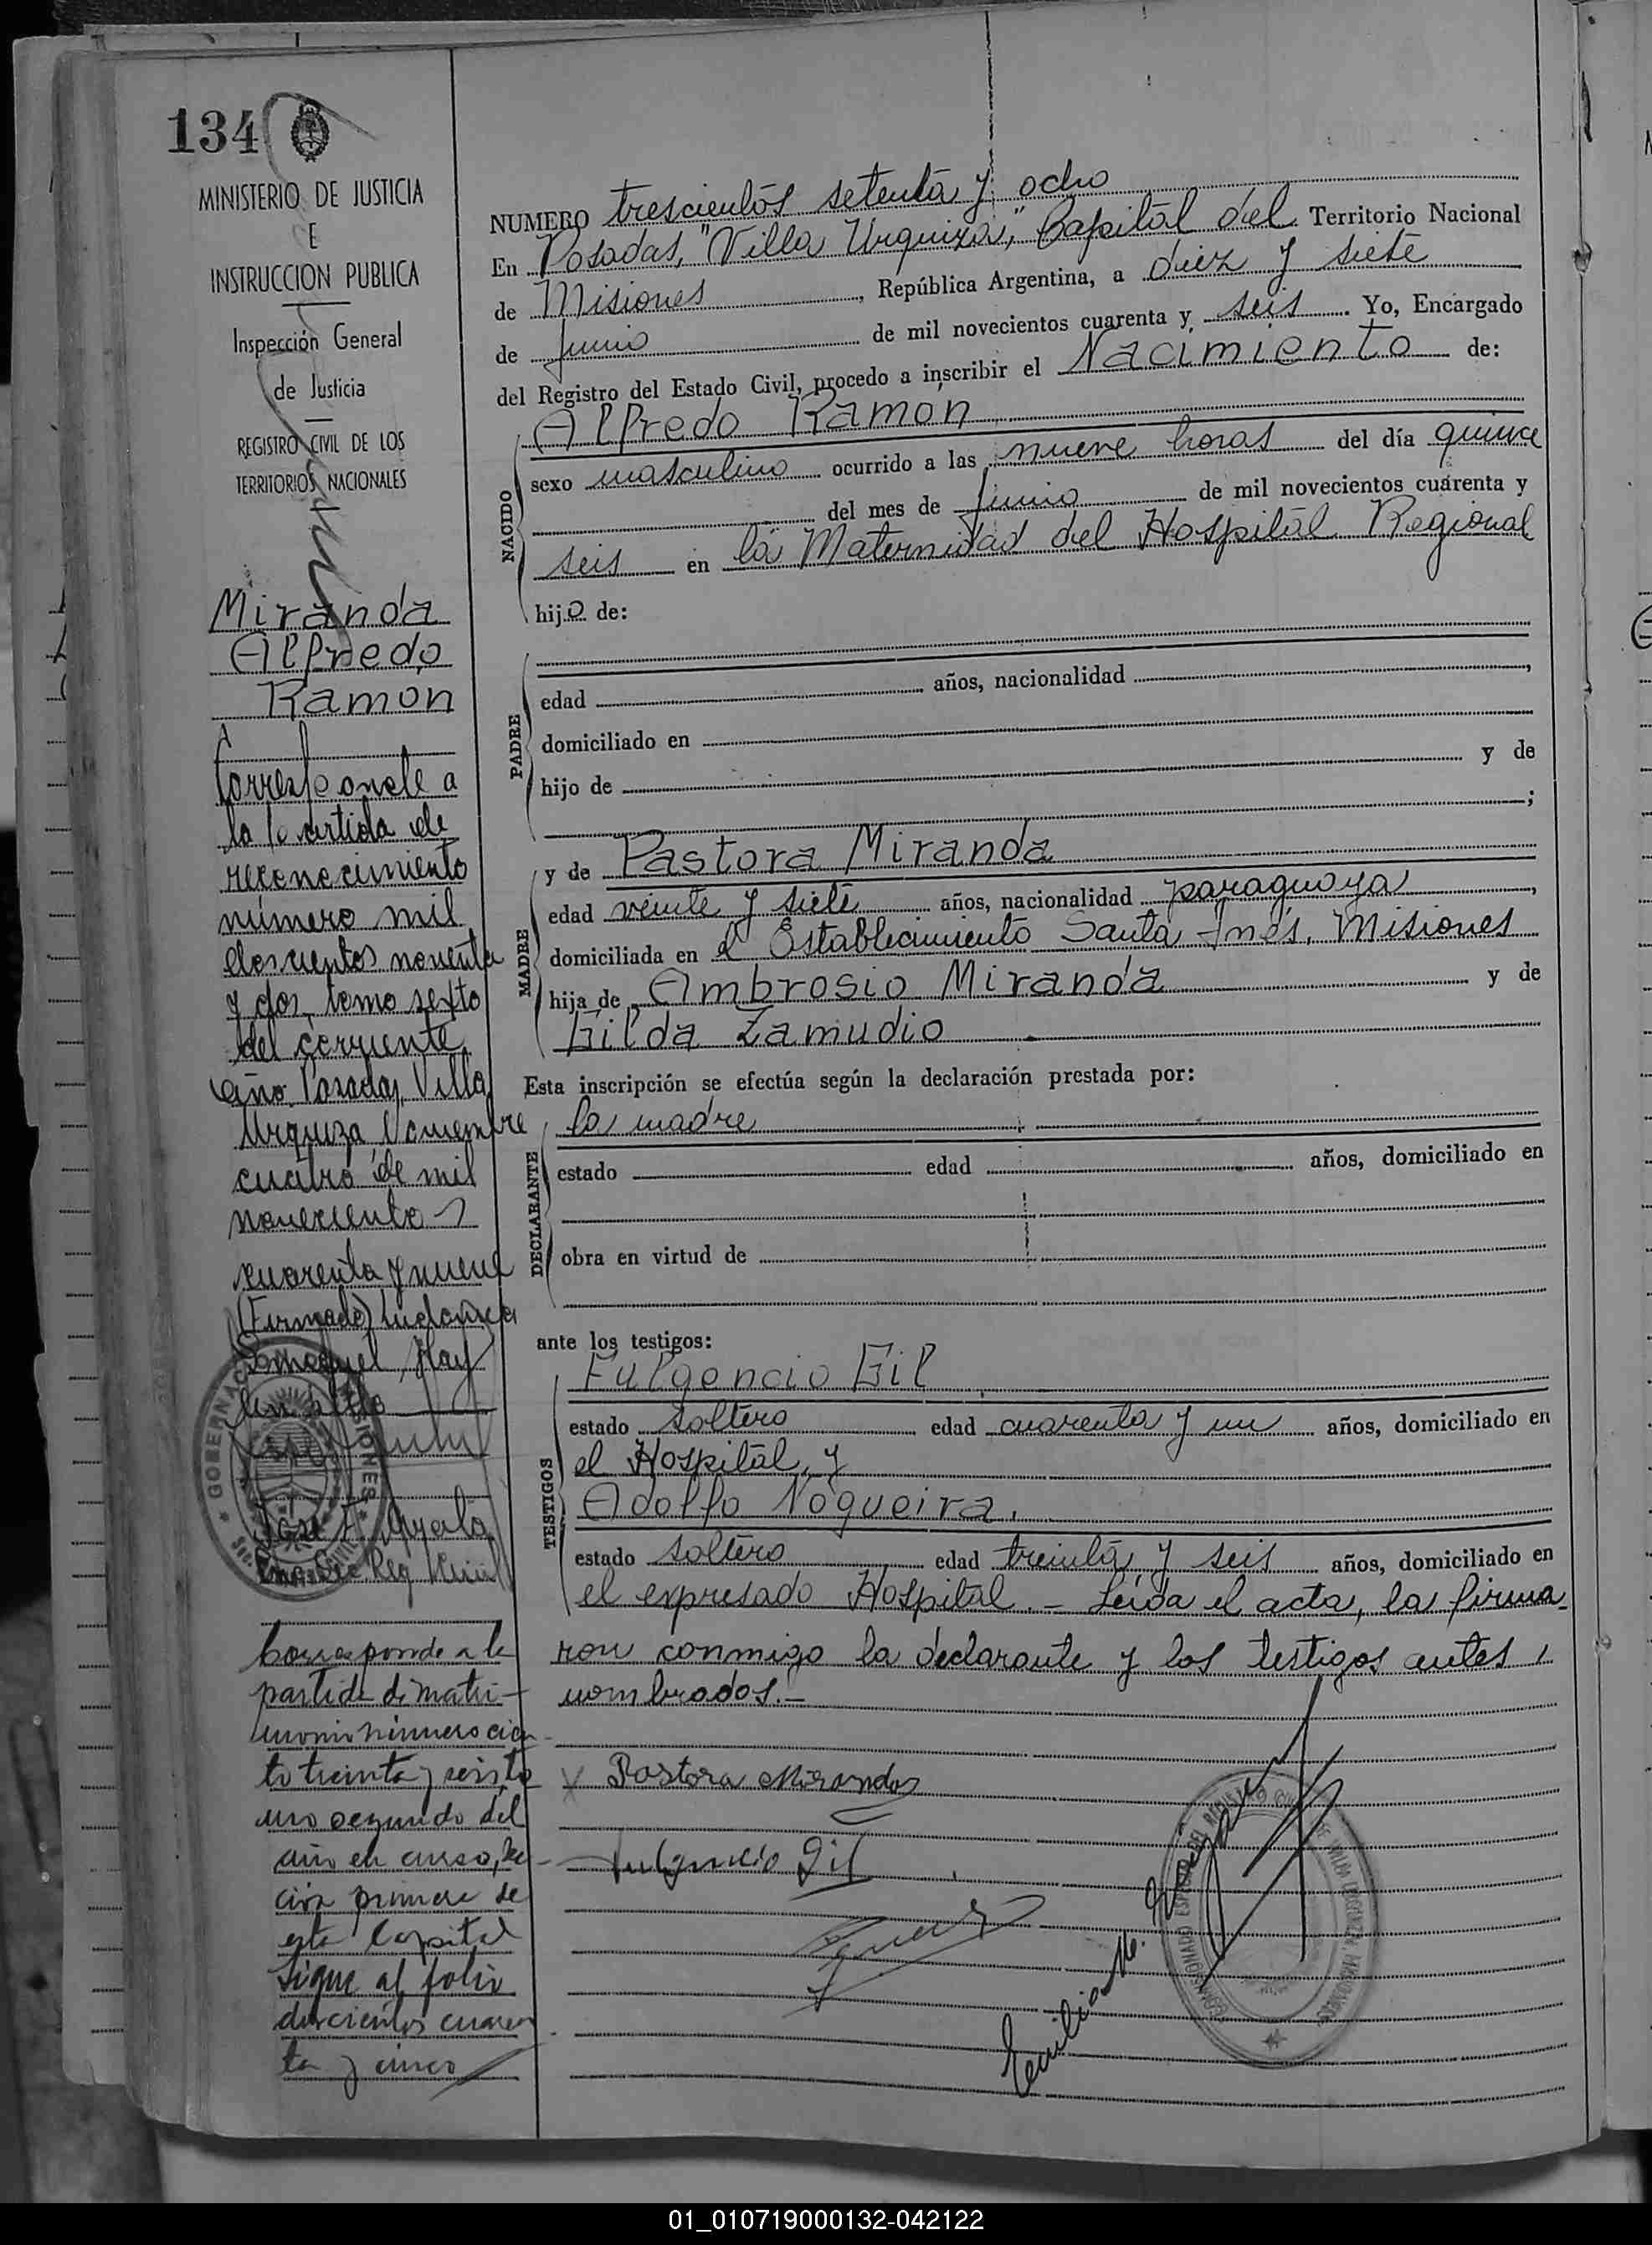 134
MINISTERIO DE JUSTICIA
E
INSTRUCCION PUBLICA
Inspección General
de Justicia
REGISTRO CIVIL DE LOS
TERRITORIOS NACIONALES
Miranda
Alfredo
Ramon
Corresponde a
la partida de
reconocimiento
número mil
doscientos noventa
y dos, tomo sexto
del corriente
año. Posadas, Villa
Urquiza, Noviembre
cuatro de mil
novecientos
cuarenta y nueve
(Firmado)
Hay
un sello
José F. Ayala
Corresponde a la
partida de matri-
monio número cien-
to treinta y seis, to-
mo segundo del
año en curso, Sec-
ción primera de
esta Capital
Sigue al folio
doscientos cuaren-
ta y cinco
NUMERO trescientos setenta y ocho
En Posadas, "Villa Urquiza", Capital del Territorio Nacional
de Misiones, República Argentina, a diez y siete
de Junio de mil novecientos cuarenta y seis. Yo, Encargado
del Registro del Estado Civil, procedo a inscribir el Nacimiento de:
NACIDO
Alfredo Ramon
sexo masculino ocurrido a las nueve horas del día quince
del mes de Junio de mil novecientos cuarenta y
seis en la Maternidad del Hospital Regional
hijo de:
PADRE
edad años, nacionalidad ,
domiciliado en
hijo de y de
;
MADRE
y de Pastora Miranda
edad veinte y siete años, nacionalidad paraguaya,
domiciliada en el Establecimiento Santa Inés, Misiones
hija de Ambrosio Miranda y de
Gilda Zamudio
Esta inscripción se efectúa según la declaración prestada por:
DECLARANTE
la madre
estado edad años, domiciliado en
obra en virtud de
ante los testigos:
TESTIGOS
Fulgencio Gil
estado soltero edad cuarenta y un años, domiciliado en
el Hospital, y
Adolfo Nogueira.
estado soltero edad treinta y seis años, domiciliado en
el expresado Hospital.- Leída el acta, la firma-
ron conmigo la declarante y los testigos antes
nombrados.-
x Pastora Miranda
Fulgencio Gil
Emilio M.
01_010719000132-042122